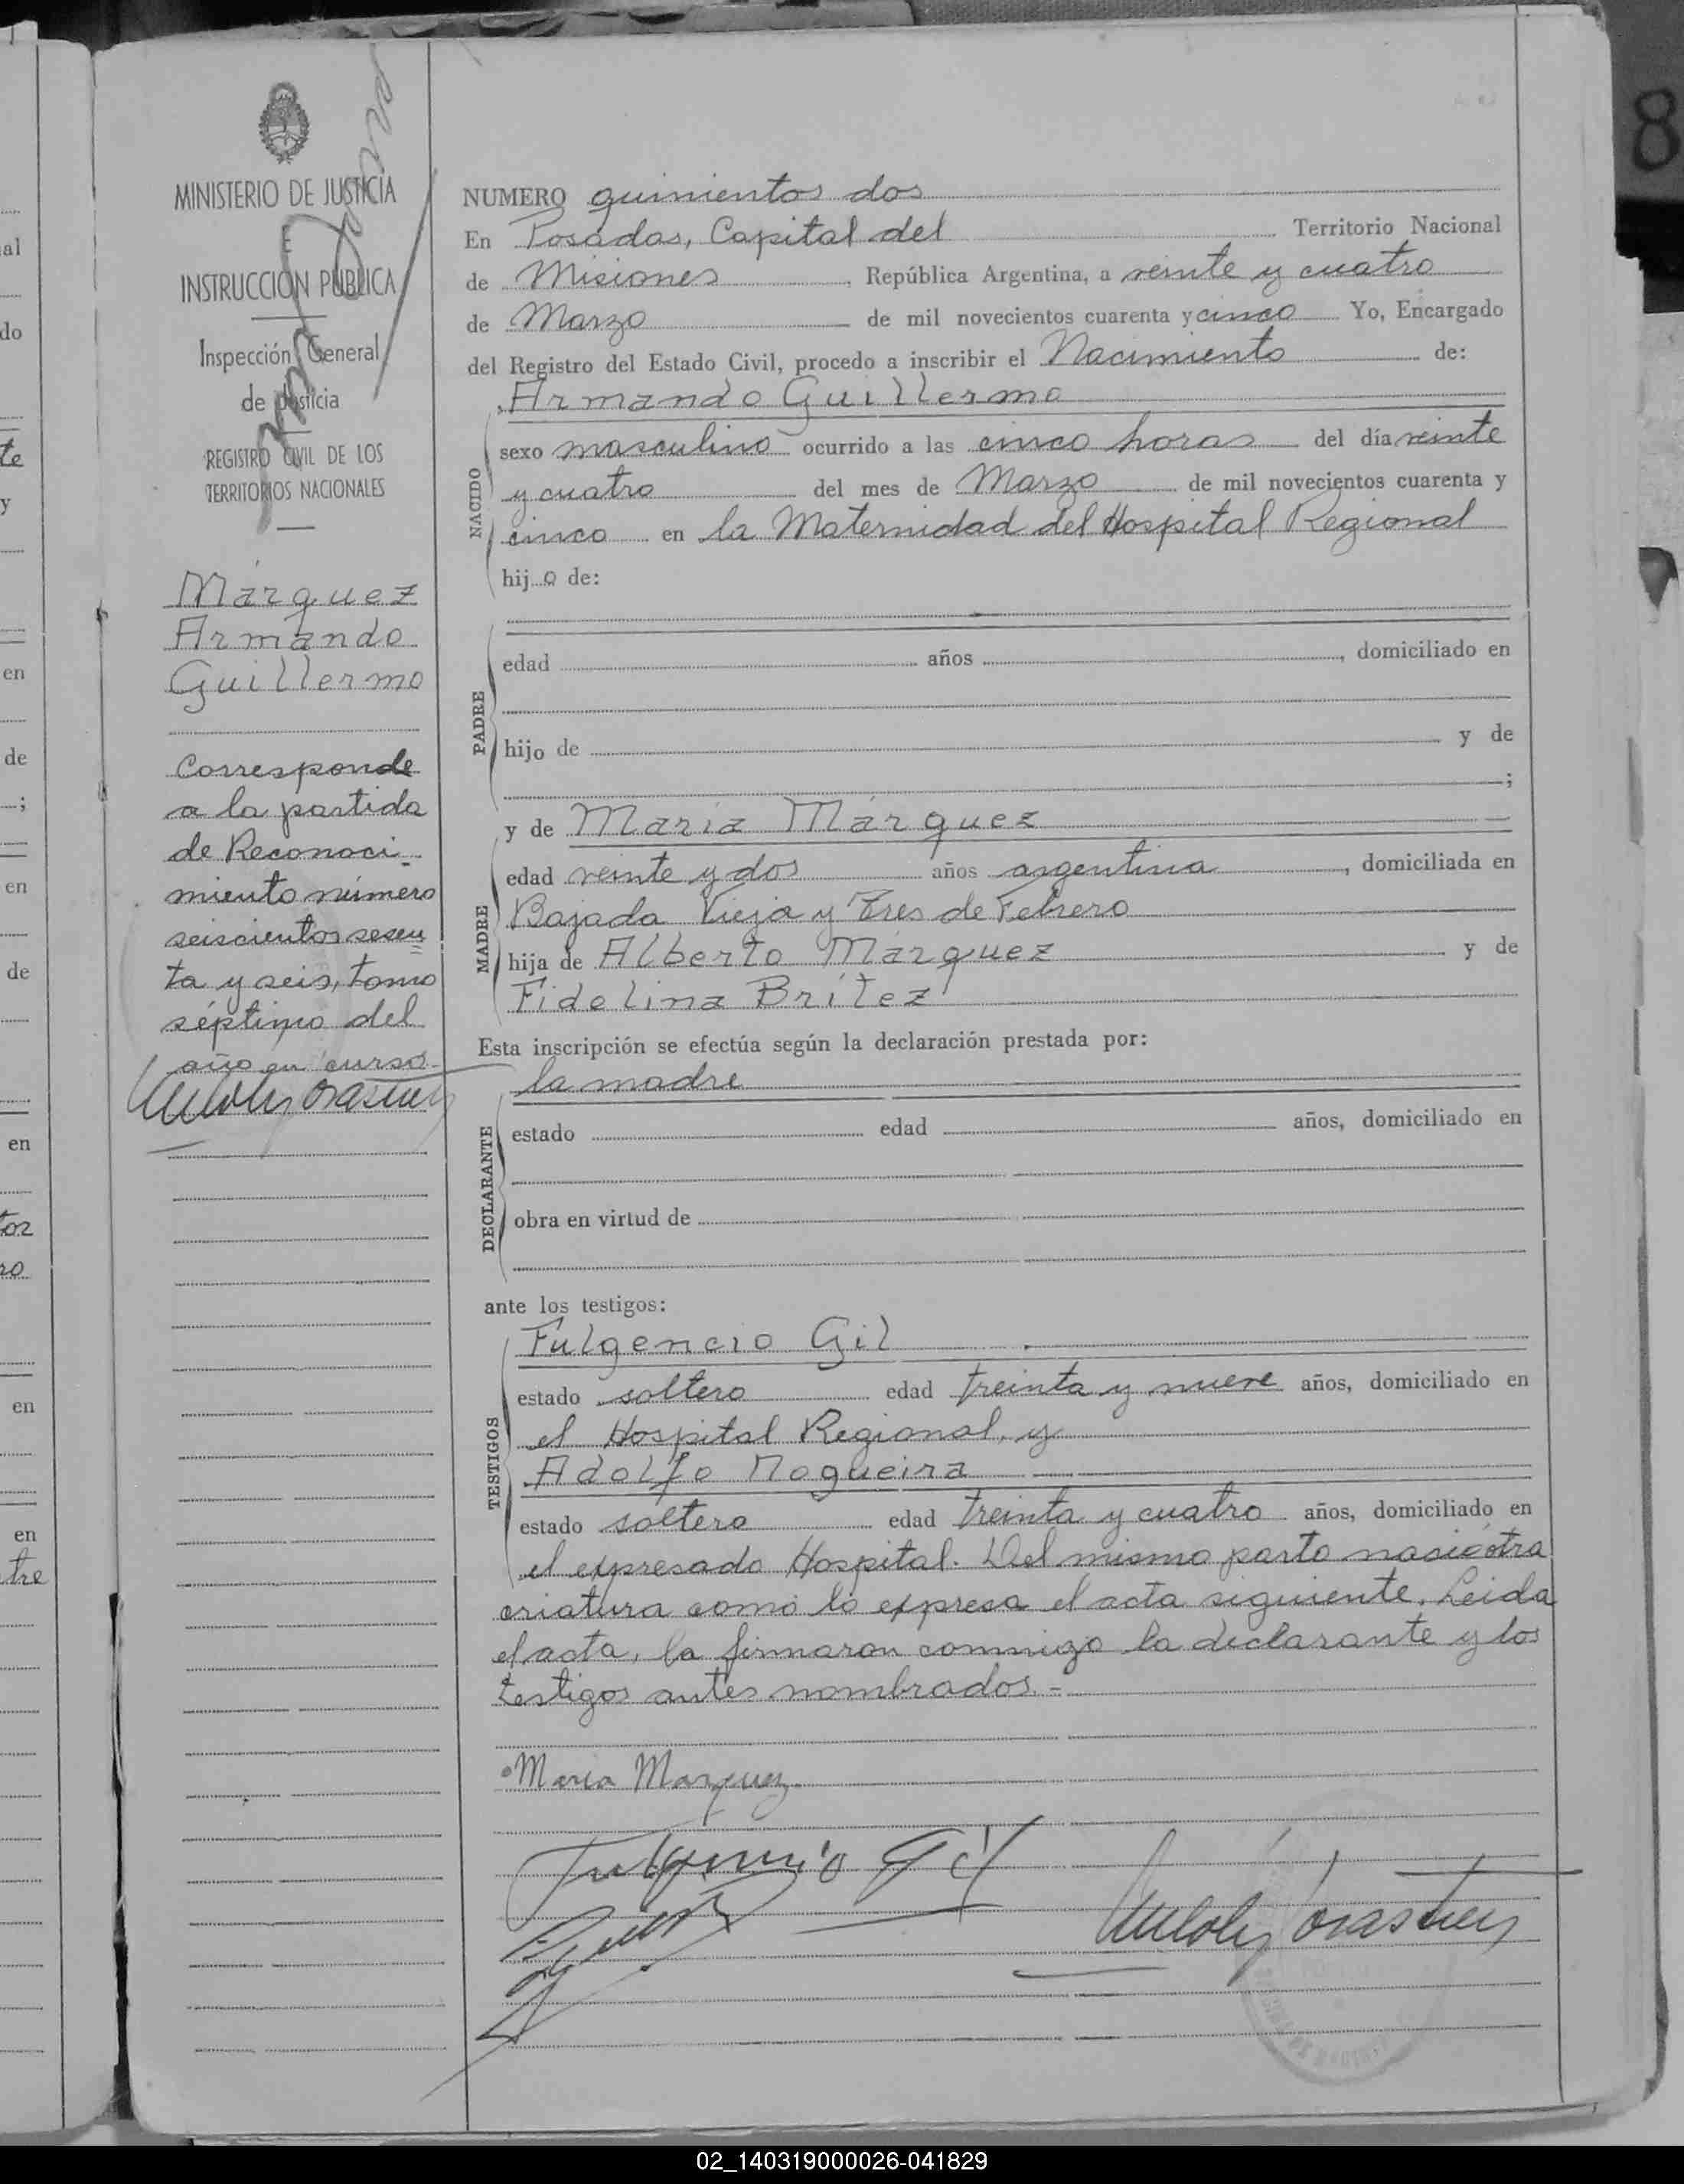 MINISTERIO DE JUSTICIA
E
INSTRUCCIÓN PÚBLICA
Inspección General
de Justicia
REGISTRO CIVIL DE LOS
TERRITORIOS NACIONALES
Márquez
Armando
Guillermo
Corresponde
a la partida
de Reconoci-
miento número
seiscientos sesen
ta y seis, tomo
séptimo del
año en curso.
NUMERO quinientos dos
En Posadas, Capital del Territorio Nacional
de Misiones, República Argentina, a veinte y cuatro
de Marzo de mil novecientos cuarenta y cinco Yo, Encargado
del Registro del Estado Civil, procedo a inscribir el Nacimiento de:
NACIDO
Armando Guillermo
sexo masculino ocurrido a las cinco horas del día veinte
y cuatro del mes de Marzo de mil novecientos cuarenta y
cinco en la Maternidad del Hospital Regional
hijo de:
PADRE
edad años, domiciliado en
hijo de y de
;
MADRE
y de María Márquez
edad veinte y dos años argentina, domiciliada en
Bajada Vieja y Tres de Febrero
hija de Alberto Márquez y de
Fidelina Brítez
Esta inscripción se efectúa según la declaración prestada por:
DECLARANTE
la madre
estado edad años, domiciliado en
obra en virtud de
ante los testigos:
TESTIGOS
Fulgencio Gil
estado soltero edad treinta y nueve años, domiciliado en
el Hospital Regional, y
Adolfo Nogueira
estado soltero edad treinta y cuatro años, domiciliado en
el expresado Hospital. Del mismo parto nació otra
criatura como lo expresa el acta siguiente. Leida
el acta, la firmaron conmigo la declarante y los
testigos antes nombrados.-
Maria Marquez
Fulgencio Gil
8
al
do
te
y
en
de
;
en
de
en
tor
ro
en
en
tre
02_140319000026-041829